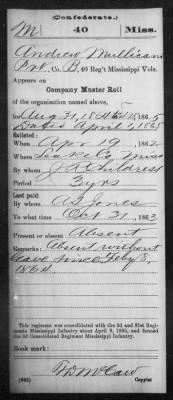 (Confederate.)
M 40 Miss.
Andrew Mullican
Pvt, Co. B, 40 Reg't Mississippi Vols.
Appears on
Company Muster Roll
of the organization named above,
Aug 31, 1864 1865
Dated April 1, 1865
Enlisted:
When Apr 19, 1862
Where Leake Co, Miss
By whom J R Childress
Period 3 yrs
Last paid:
By whom A S Jones
To what time Oct 31, 1863
Present or absent Absent
Remarks: Absent without
leave since Feby 8,
1864.
This regiment was consolidated with the 3d and 31st Regiments Mississippi Infantry about April 9, 1865, and formed the 3d Consolidated Regiment Mississippi Infantry.
Book mark:
(642) Copyist